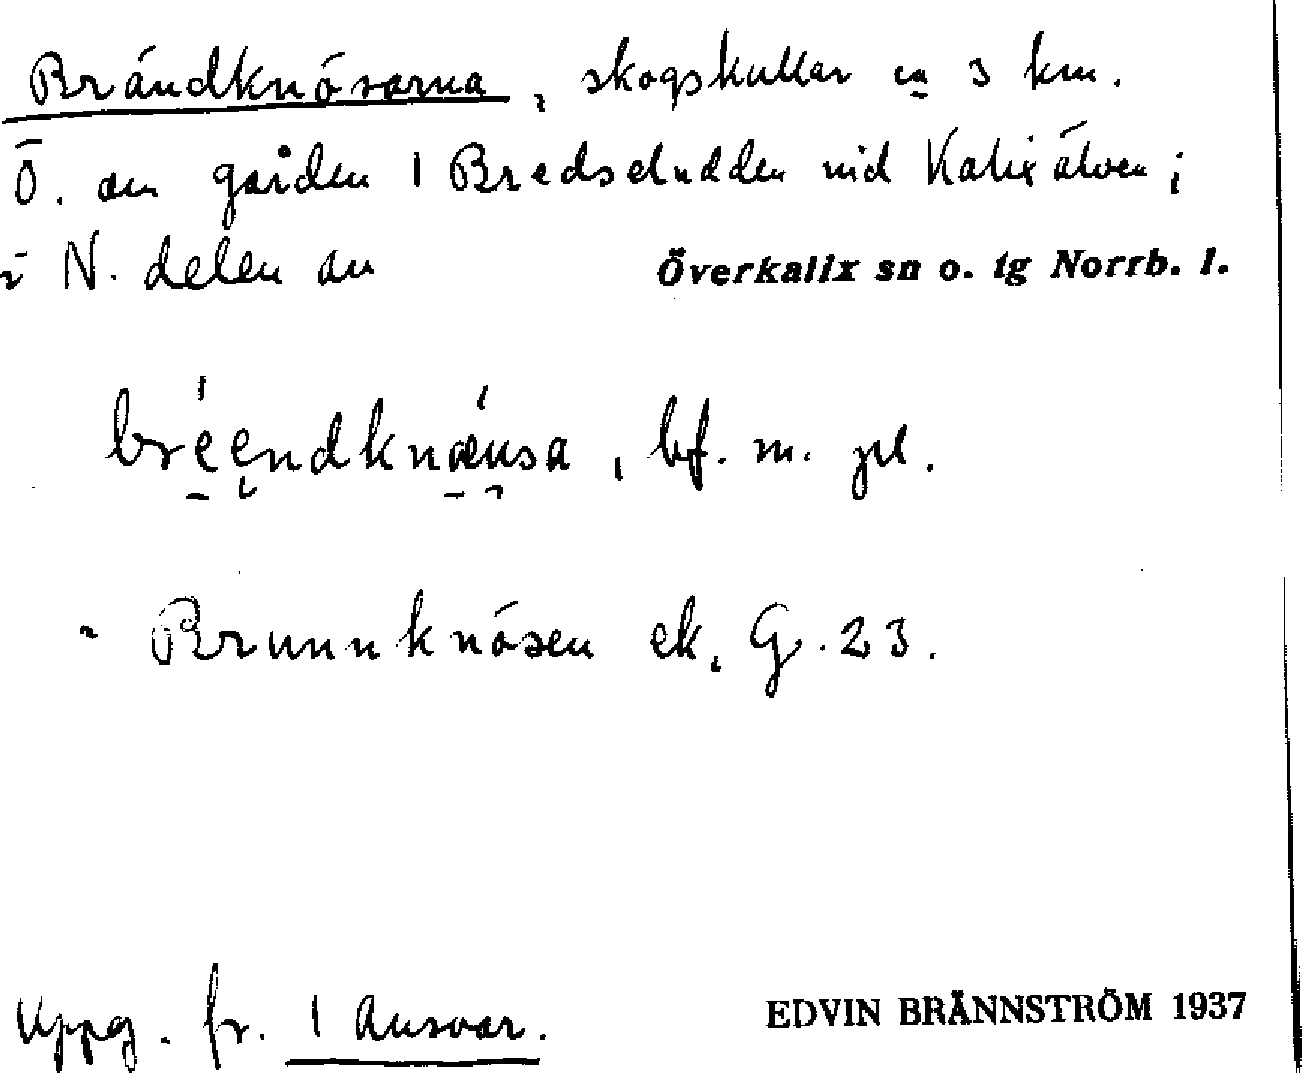 Brändknösarna, skogskullar ca 3 km.
Ö. om gården 1 Bredseludden vid Kalixälven;
i N. delen av Överkalix sn o. tg Norrb. l.
bréendknæusa, bf. m. pl.
- Brunnknösen ek. G. 23.
Uppg. fr. 1 Ansvar. EDVIN BRÄNNSTRÖM 1937